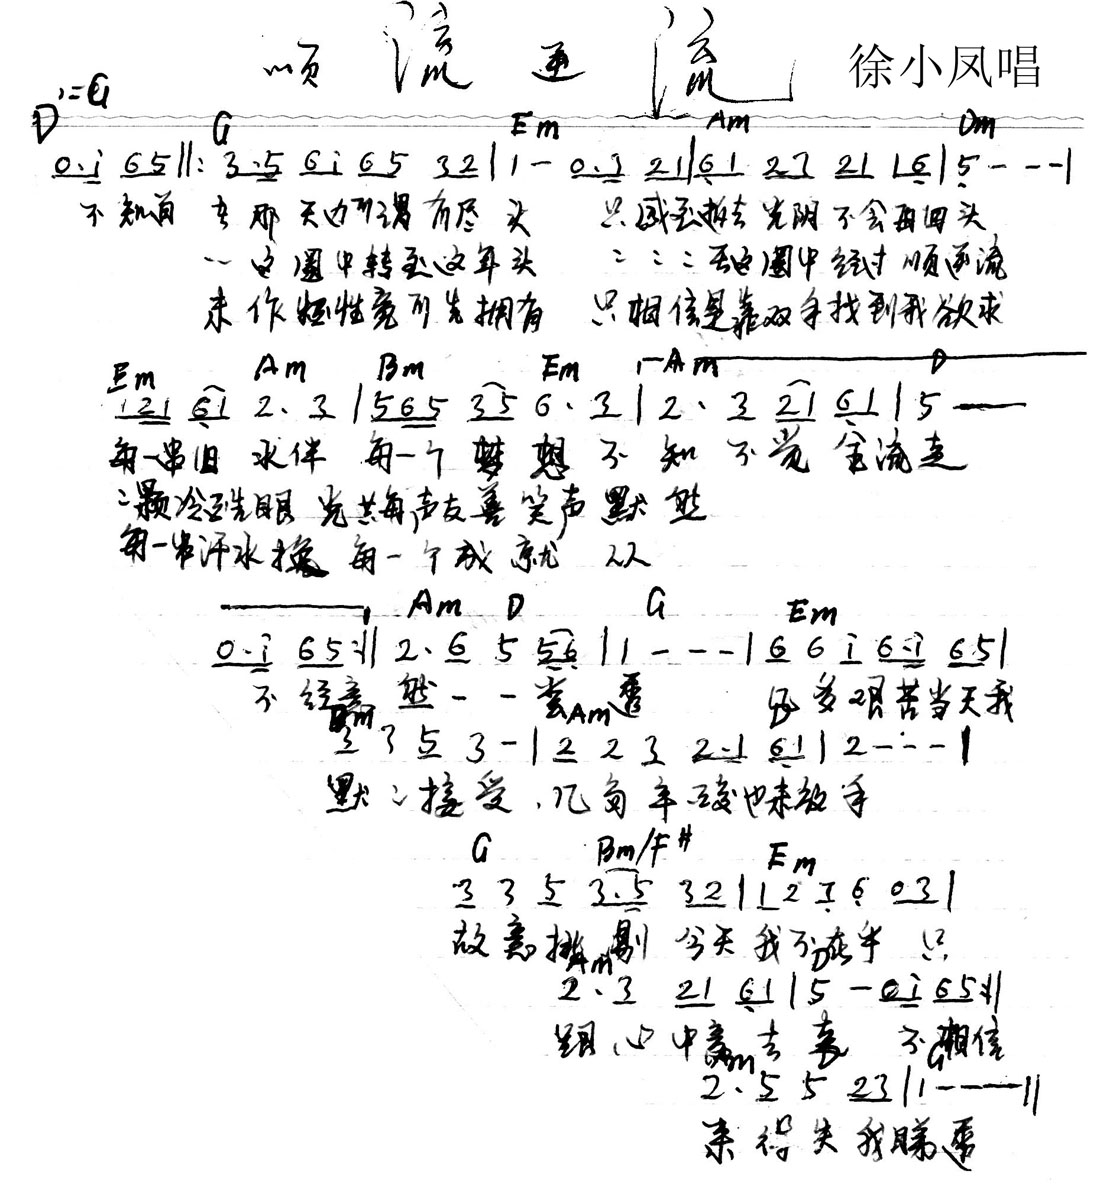 顺 流 逆 流 徐小凤唱
1=G
D G Em Am Dm
0.i 65 ||: 3.5 6i 65 32 | 1 - 0.3 21 | 61 23 21 16 | 5 - - - |
不知 去那 天边所谓有尽头 只感到 光阴不会再回头
一 这圈中转到这年头 二 二 二 在这圈中经过顺逆流
未作牺性竟可先拥有 只相信是靠双手找到我欲求
Em Am Bm Em Am D
121 61 2. 3 | 565 35 6. 3 | 2. 3 21 61 | 5 —
每一串泪水伴每一个梦想 不知不觉全流走
二颗冷 眼光共每声友善笑声默然
每一串汗水换每一个成就 从
Am D G Em
0.i 65 :|| 2. 6 5 56 | 1 - - - | 6 6 i 6.i 65 |
不经意 然 - - 当天我
Am
3 3 5 3 - | 2 2 3 2.1 61 | 2 - - - |
默二接受 几多辛酸也未放手
G Bm/F# Em
3 3 5 3.5 32 | 1 2 6 03 |
故意 今天我不在乎 只
Am D
2. 3 21 61 | 5 - 0i 65 :||
心中意去 不相信
G
2. 5 5 23 | 1 - - - - ||
未得失我睇透